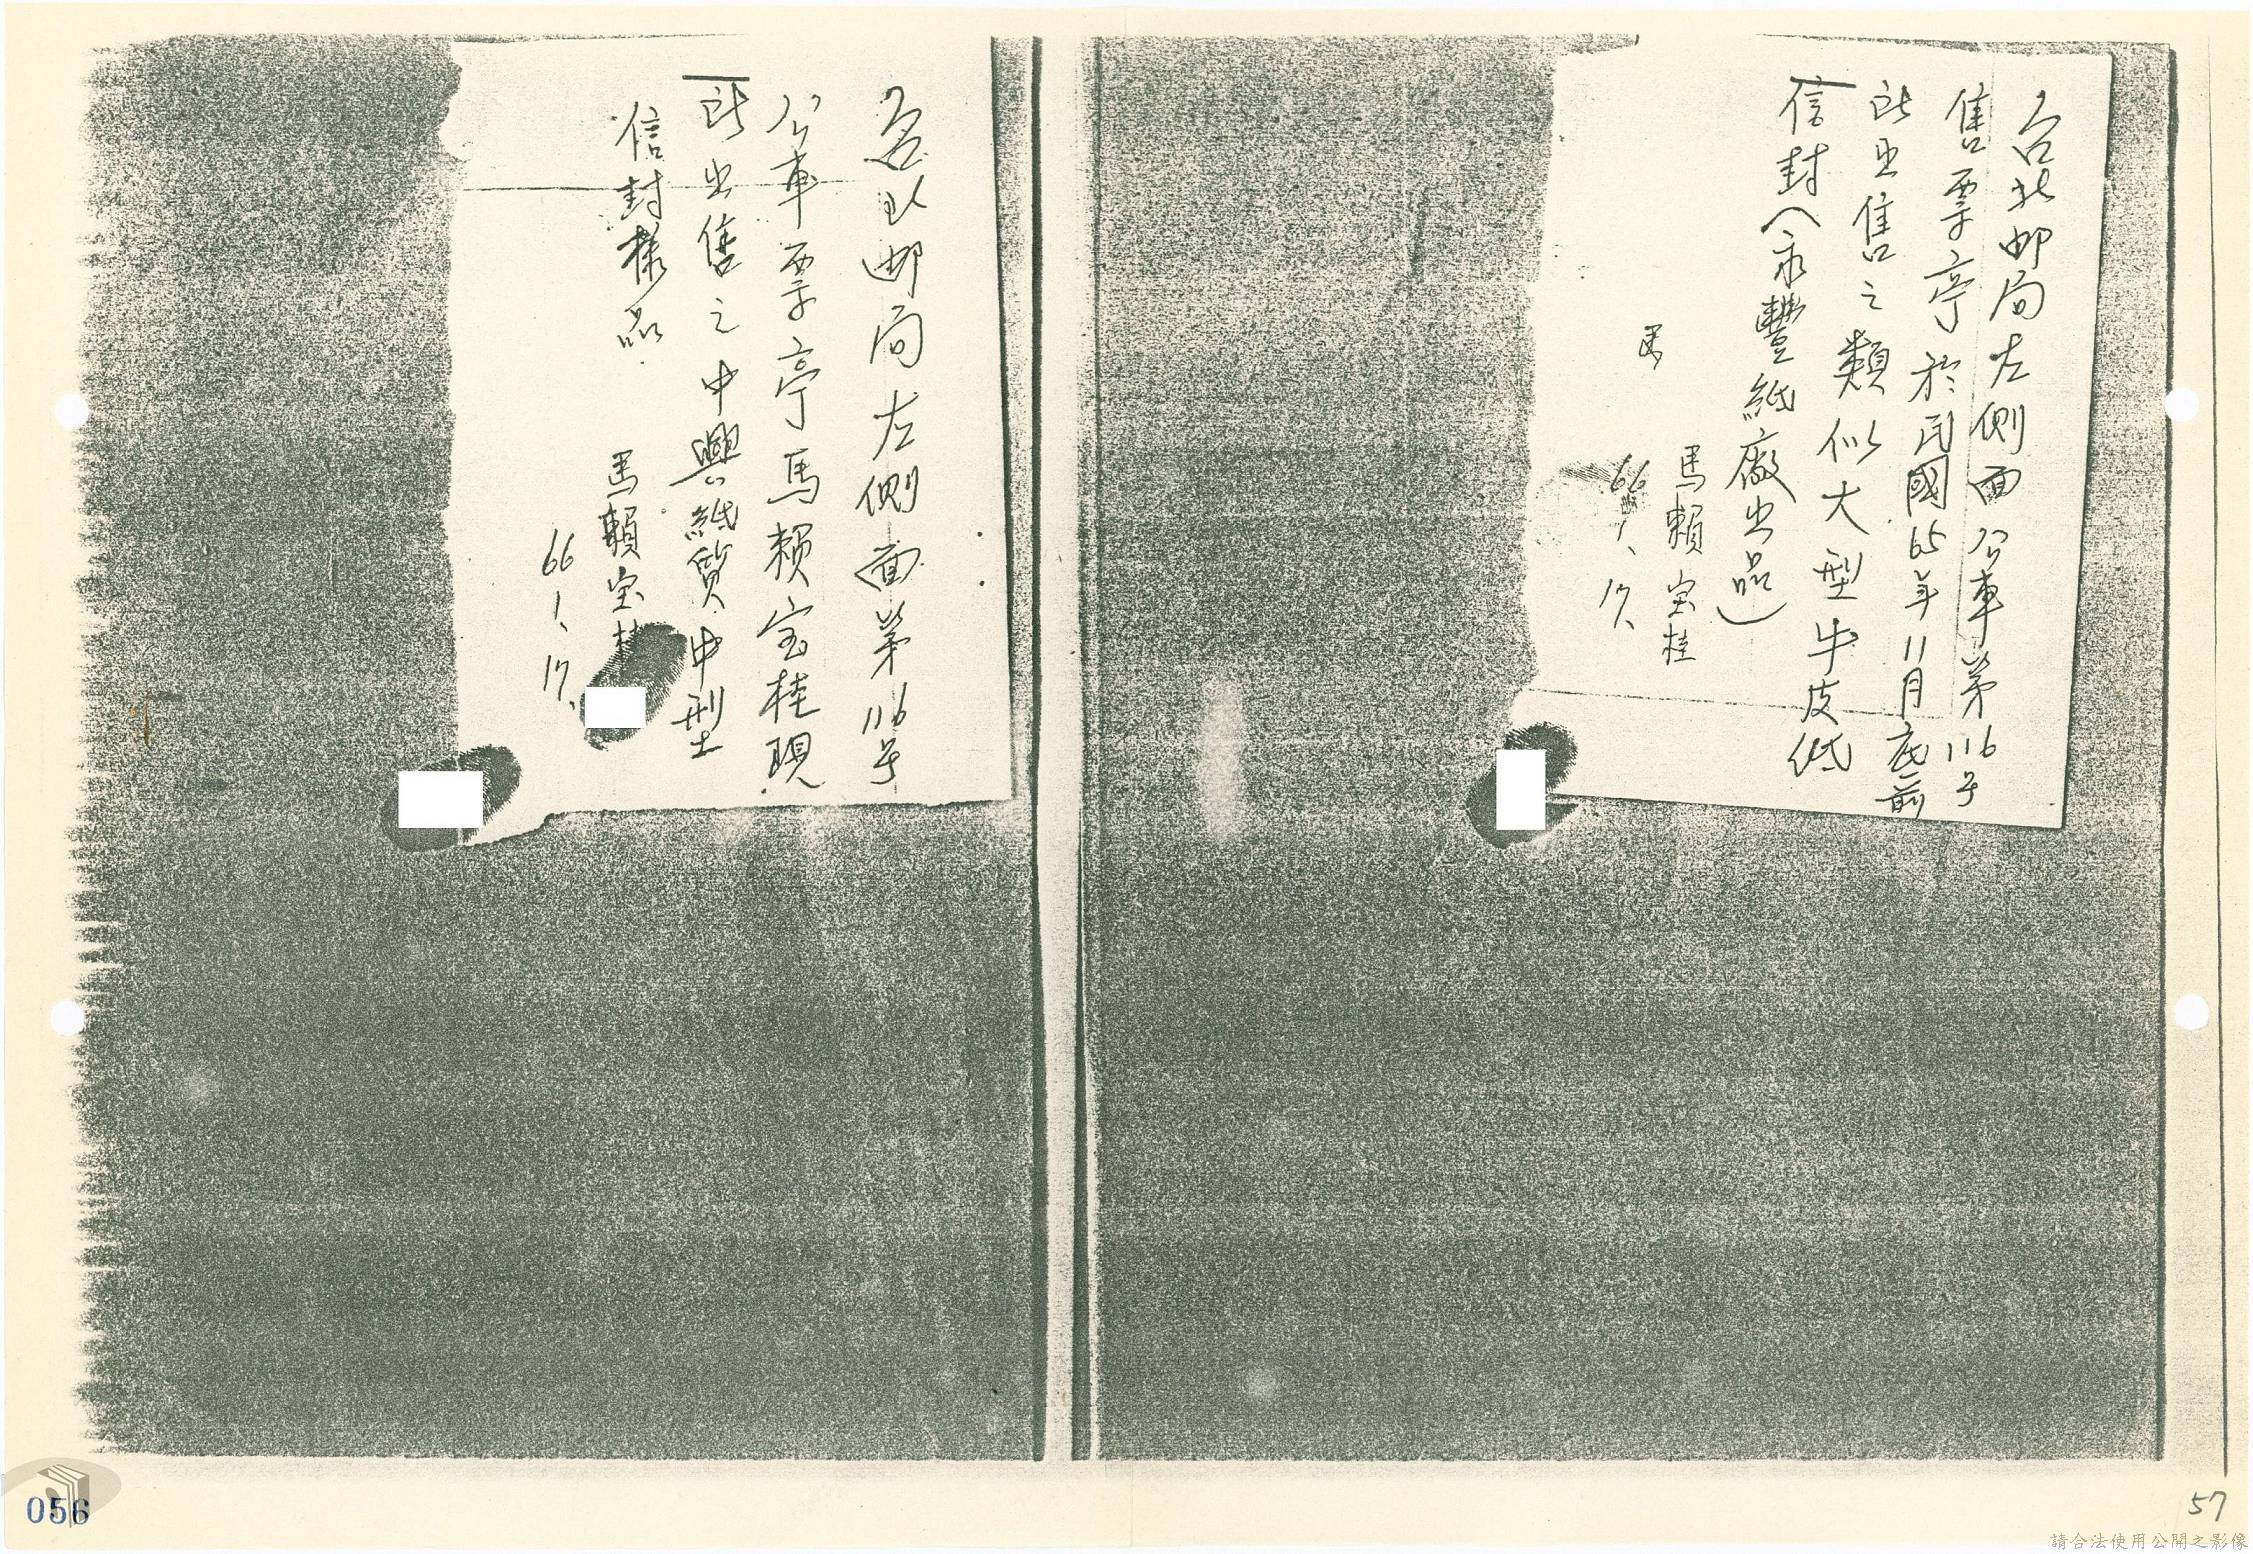 台北邮局左側面公車第116号
售票亭於民國65年11月底前
所出售之類似大型牛皮紙
信封(永豐紙廠出品)
馬賴宝桂
66
1、17、
台北邮局左側面第116号
公車票亭馬賴宝桂現
所出售之中興紙質中型
信封樣品
馬賴宝桂
66
1、17、
056
57
請合法使用公開之影像